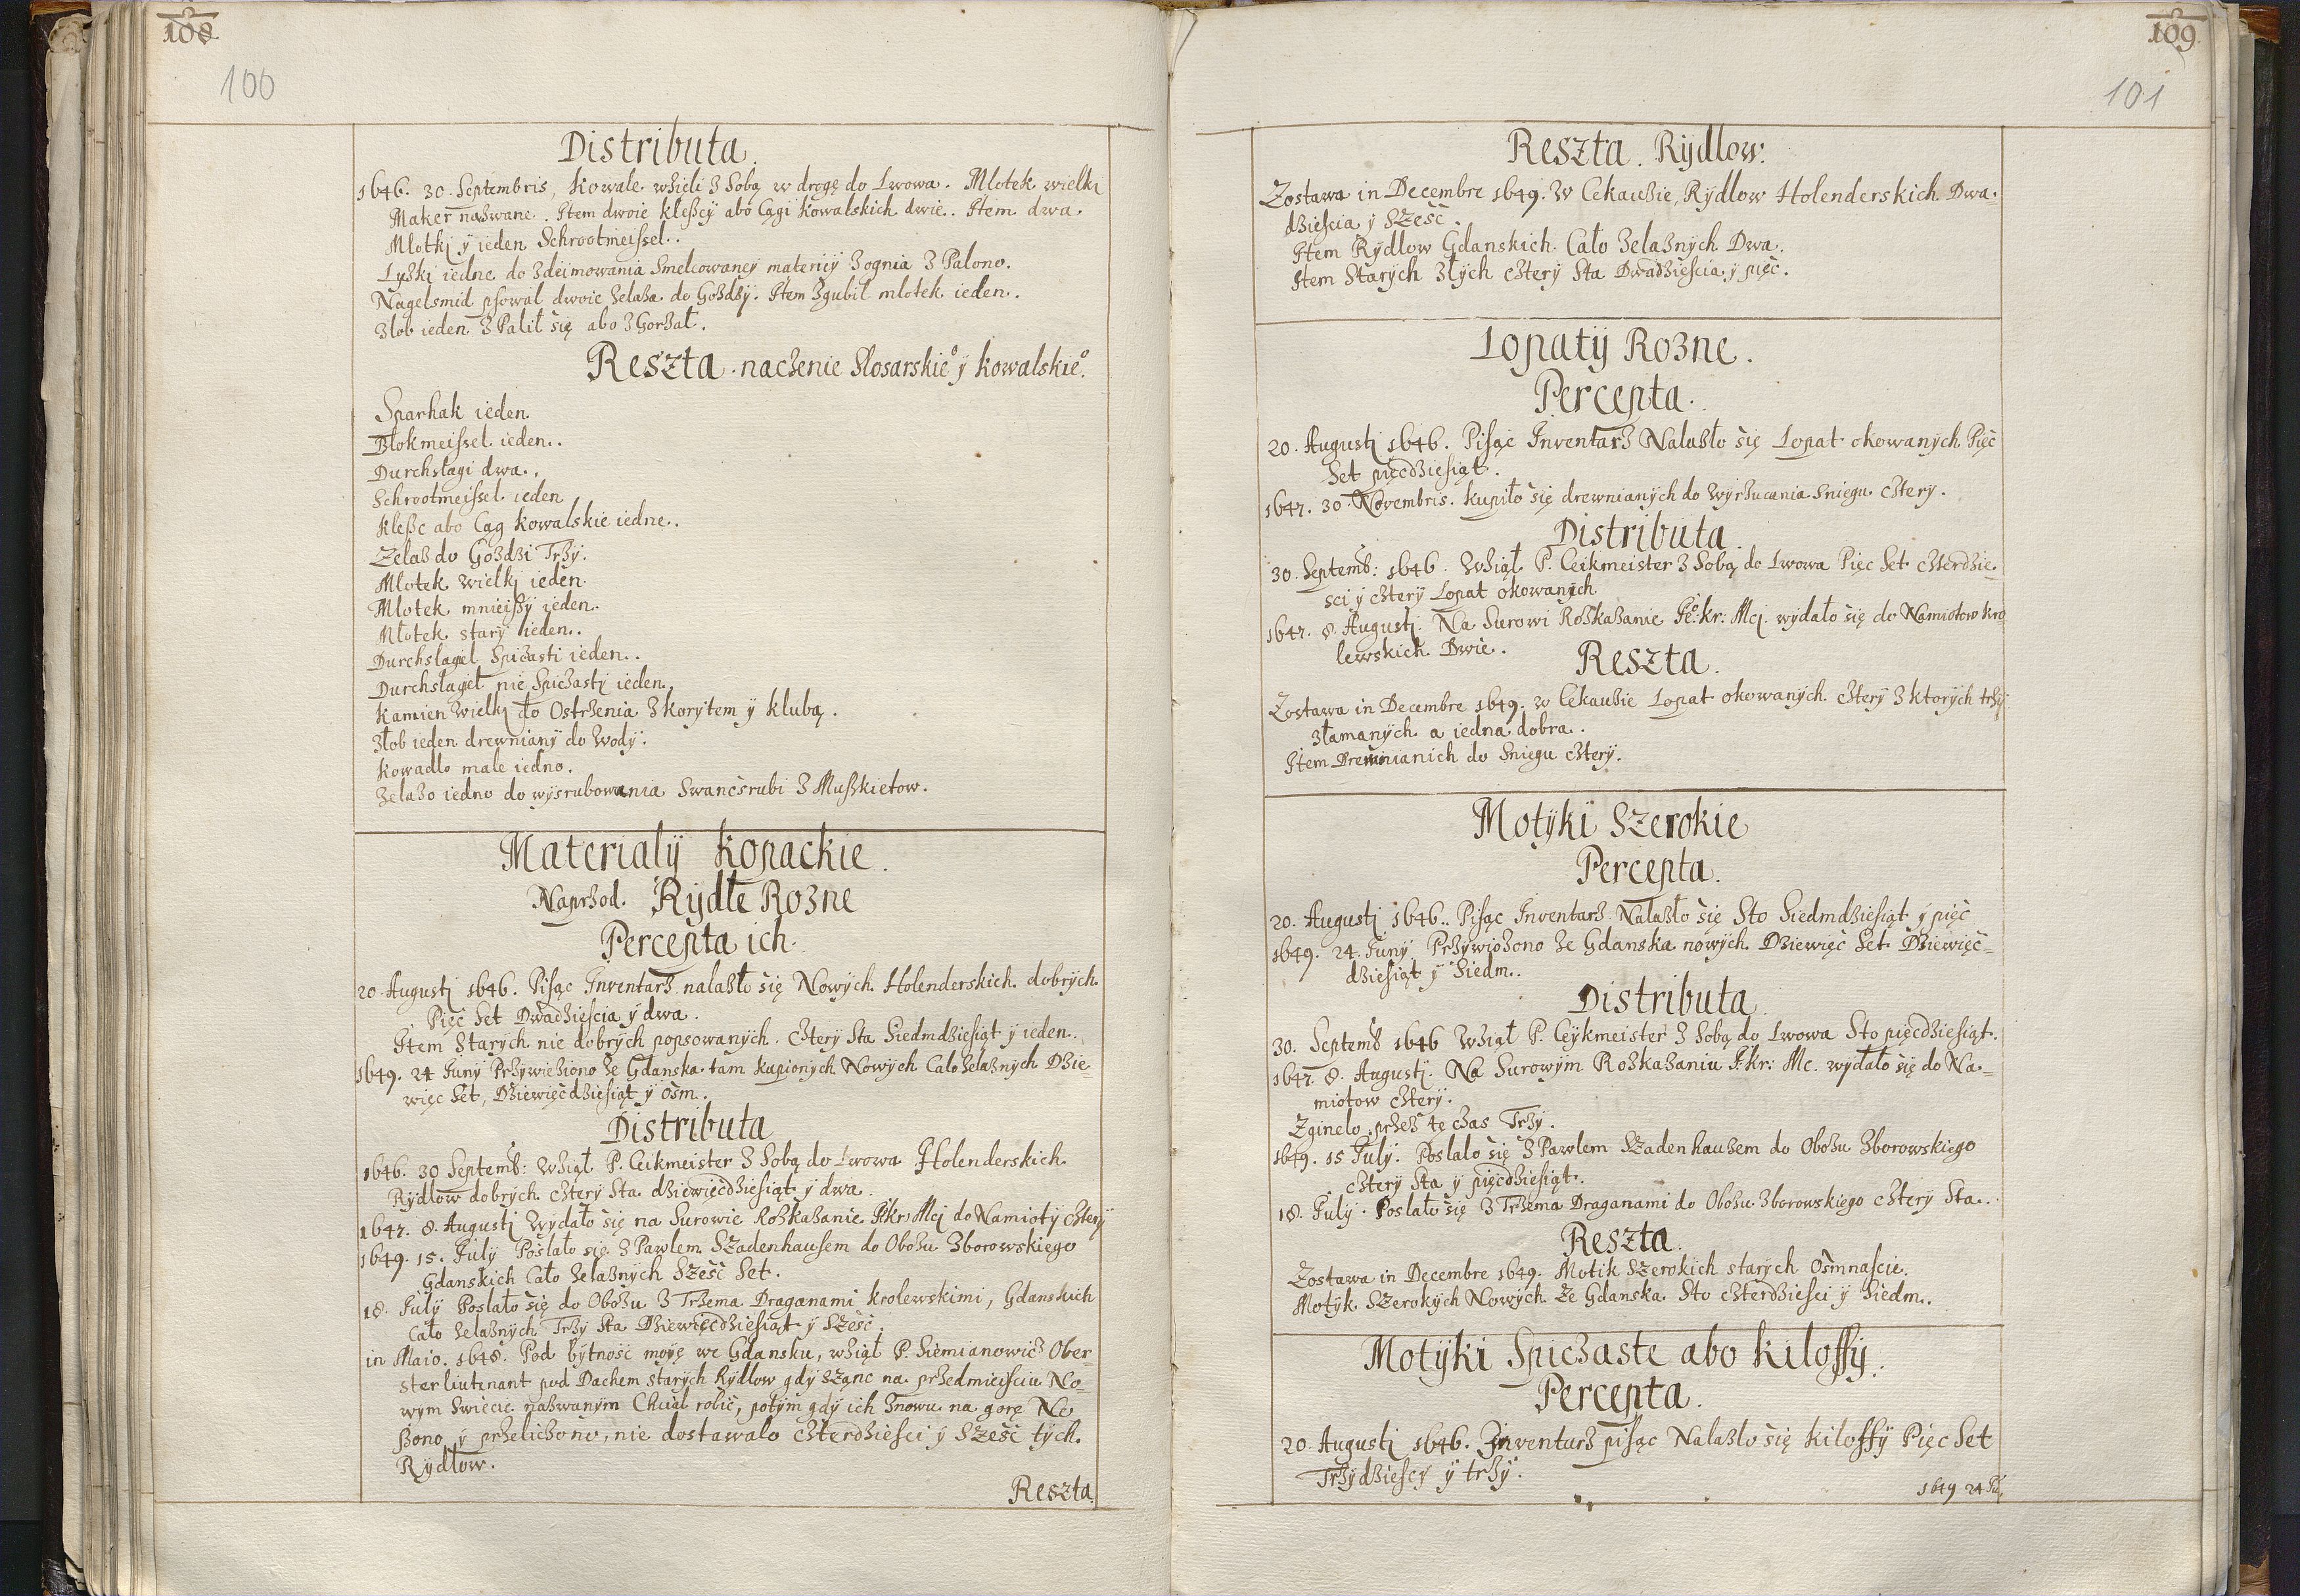 108.
100
Distributa.
1646. 30. Septembris, Kowale wzieli z Sobą w drogę do Lwowa. Mlotek wielki
Maker nazwane. Item dwoie kleßcÿ abo Cągi Kowalskich dwie.. Item dwa.
Mlotkj ÿ ieden Schrootmeissel..
Lyżkj iedne do zdeimowania Smelcowaneÿ materiiÿ z ognia z Palono.
Nagelsmid psował dwoie żelaza do Goździÿ. Item zgubił mlotek ieden.
Złob ieden z Palił się abo z Gorzał.
Reszta. naczenie Slosarskieº ÿ Kowalskieº.
Sparhak ieden.
Błokmeissel ieden..
Durchsłagi dwa..
Schrootmeissel ieden
Kleßc abo Cąg Kowalskie iedne..
Zelaz do Goździ Trzÿ.
Mlotek wielkj ieden.
Mlotek mnieißÿ ieden.
Młotek starÿ ieden..
Durchslagiel Spiczasti ieden..
Durchsłagiel nie Spiczastÿ ieden.
Kamien wielkj do Ostrzenia z korÿtem ÿ klubą.
Złob ieden drewnianÿ do wodÿ.
Kowadlo małe iedno.
Zelazo iedno do wÿsrubowania Swancsrubi z Muszkietow.
Materialÿ Kopackie.
Naprzod. Rÿdłe Rozne
Percepta ich.
20. Augustj 1646. Pisąc Inventarz nalazło się Nowÿch Holenderskich dobrÿch
Pięć Set Dwadziescia ÿ dwa.
Item Starÿch nie dobrÿch popsowanÿch. czterÿ Sta Siedmdziesiąt ÿ ieden..
1649. 24 Junÿ Przÿwieziono ze Gdanska tam kupionÿch Nowÿch Calo żelaznÿch Dzie-
więc Set, Dziewięcdziesiąt ÿ osm.
Distributa
1646. 30 Septemb: wziął P. Ceikmeister z Sobą do Lwowa Holenderskich
Rÿdlow dobrÿch czterÿ Sta dziewięcdziesiąt ÿ dwa.
1647. 8. Augustj Wÿdało się na Surowie Rozkazanie Jkr Mcj do Namiotÿ czterÿ
1649. 15. Julÿ Posłało się z Pawlem Szadenhausem do Obozu Zborowskiego
Gdanskich Cało żelaznÿch Sześć Set.
18. Julÿ Posłało się do Obozu z Trzema Draganami krolewskimi, Gdanskich
Cało żelaznÿch Trzÿ Sta Dziewięcdziesiąt ÿ Sześć.
in Maio. 1648. Pod bÿtność moię we Gdansku, wziął P. Siemianowicz Ober-
ster liutinant pod Dachem starÿch Rÿdlow gdÿ sząnc na przedmieisciu No-
wÿm Swiecie nazwanÿm Chciał robić, potÿm gdÿ ich znowu na gorę No
ßono ÿ przeliczono, nie dostawało czterdziesci ÿ Sześć tÿch
Rÿdlow.
Reszta.
109.
101
Reszta. Rÿdlow.
Zostawa in Decembre 1649. w Cekauzie, Rÿdlow Holenderskich Dwa-
dziescia ÿ Sześć.
Item Rÿdlow Gdanskich Cało żelaznÿch Dwa.
Item Starÿch złÿch czterÿ Sta Dwadziescia ÿ pięć.
Lopatÿ Rozne.
Percepta.
20. Augustj 1646. Pisąc Inventarz Nalazło się Lopat okowanÿch Pięć
Set pięcdziesiąt.
1647. 30. Novembris. kupiło się drewnianÿch do wÿrzucania Sniegu czterÿ.
Distributa
30. Septemb: 1646. Wziął P. Ceikmeister z Sobą do Lwowa Pięc Set czterdzie-
sci ÿ czterÿ Lopat okowanÿch
1647. 8. Augustj. Na Surowi Rozkazanie Jº. kr: Mcj. wÿdało się do Namiotow kro
lewskich Dwie.
Reszta.
Zostawa in Decembre 1649. w Cekauzie Lopat okowanÿch czterÿ z ktorÿch trzÿ
złamanÿch a iedna dobra..
Item Drewnianich do Sniegu czterÿ.
Motÿki Szerokie
Percepta.
20. Augustj 1646.. Pisąc Inventarz Nalazło się Sto Siedmdziesiąt ÿ pięć
1649. 24. Junÿ Przÿwiozono ze Gdanska nowÿch Dziewięć Set Dziewięć-
dziesiąt ÿ Siedm..
Distributa
30. Septemb 1646 Wziął P. Ceÿkmeister z Sobą do Lwowa Sto pięcdziesiąt.
1647. 8. Augustj. Na Surowÿm Rozkazaniu J. kr: Mc. wÿdało się do Na-
miotow czterÿ.
Zginelo przez te czas Trzÿ.
1649. 15 Julÿ. Posłalo się z Pawlem Szadenhauzem do Obozu Zborowskiego
czterÿ Sta ÿ pięcdziesiąt.
18. Julÿ. Posłało się z Trzema Draganami do Obozu Zborowskiego czterÿ Sta..
Reszta.
Zostawa in Decembre 1649. Motik Szerokich starÿch Osmnascie.
Motÿk Szerokÿch Nowÿch ze Gdanska Sto czterdziesci ÿ Siedm..
Motÿki Spiczaste abo Kiloffÿ.
Percepta.
20. Augustj 1646. Inventarz pisąc Nalazlo się kiloffÿ Pięc Set
Trzÿdziescÿ ÿ trzÿ.
1649 24 Ju,